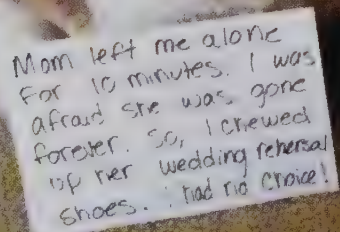 Mom left me alone
For 10 minutes. I was
afraid she was gone
forever. So, I chewed
up her wedding rehersal
shoes. I had no choice!